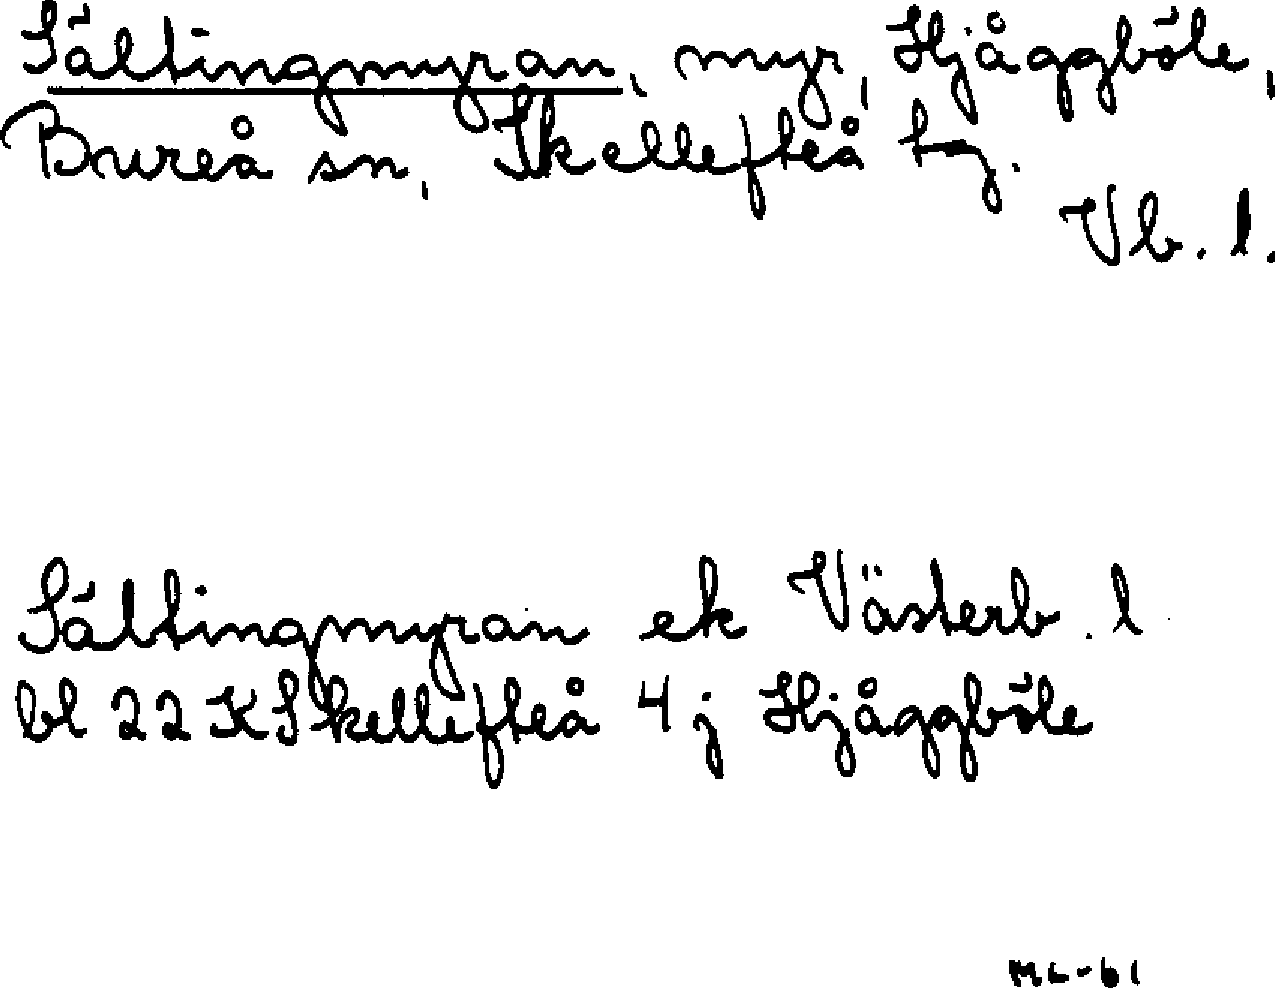 Sältingmyran, myr, Hjåggböle,
Bureå sn, Skellefteå tg.
Vb. l.
Sältingmyran ek Västerb. l
bl 22 K Skellefteå 4 j Hjåggböle
ML-61